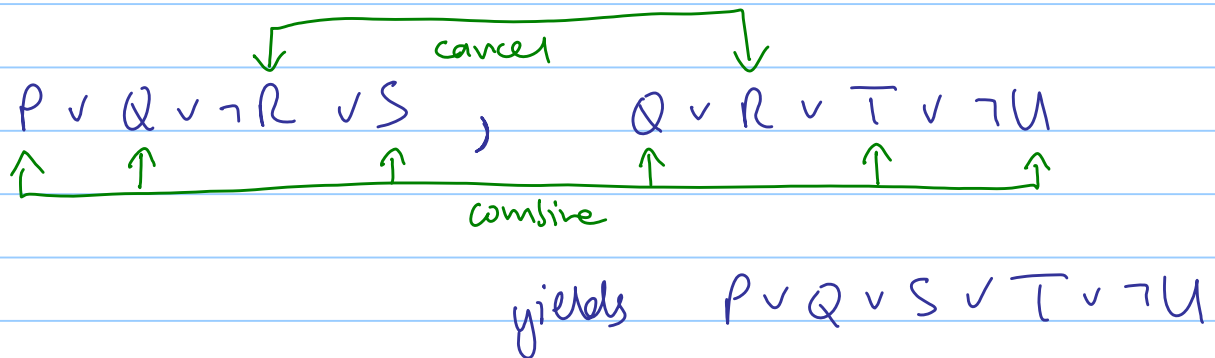 cancel
P ∨ Q ∨ ¬R ∨ S , Q ∨ R ∨ T ∨ ¬U
combine
yields P ∨ Q ∨ S ∨ T ∨ ¬U